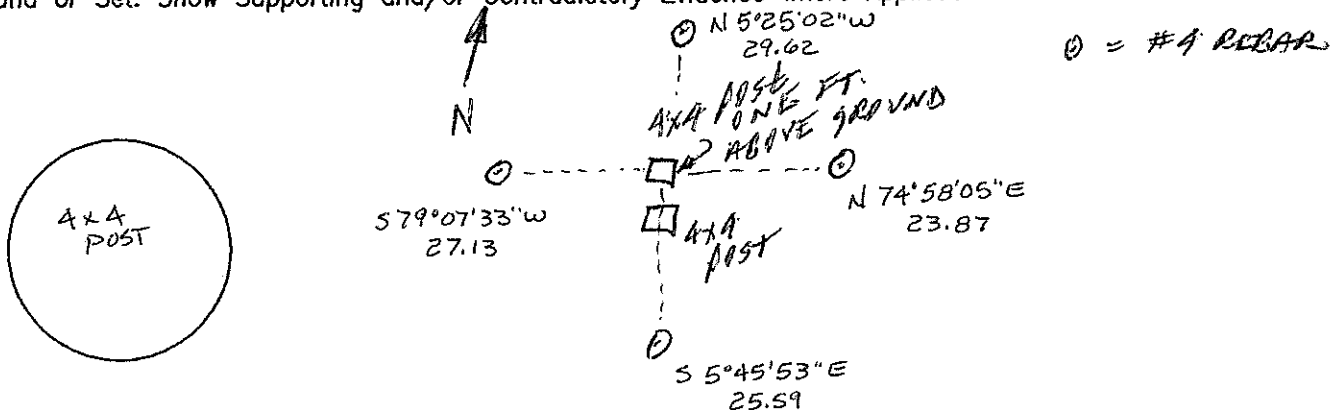 and or Set. Show Supporting and/or Contradictory Evidence Where
N 5°25'02"W
29.62
⊙ = #4 REBAR
N
4x4 POST
ONE FT.
ABOVE GROUND
4x4
POST
S79°07'33"W
27.13
N 74°58'05"E
23.87
4x4
POST
S 5°45'53"E
25.59